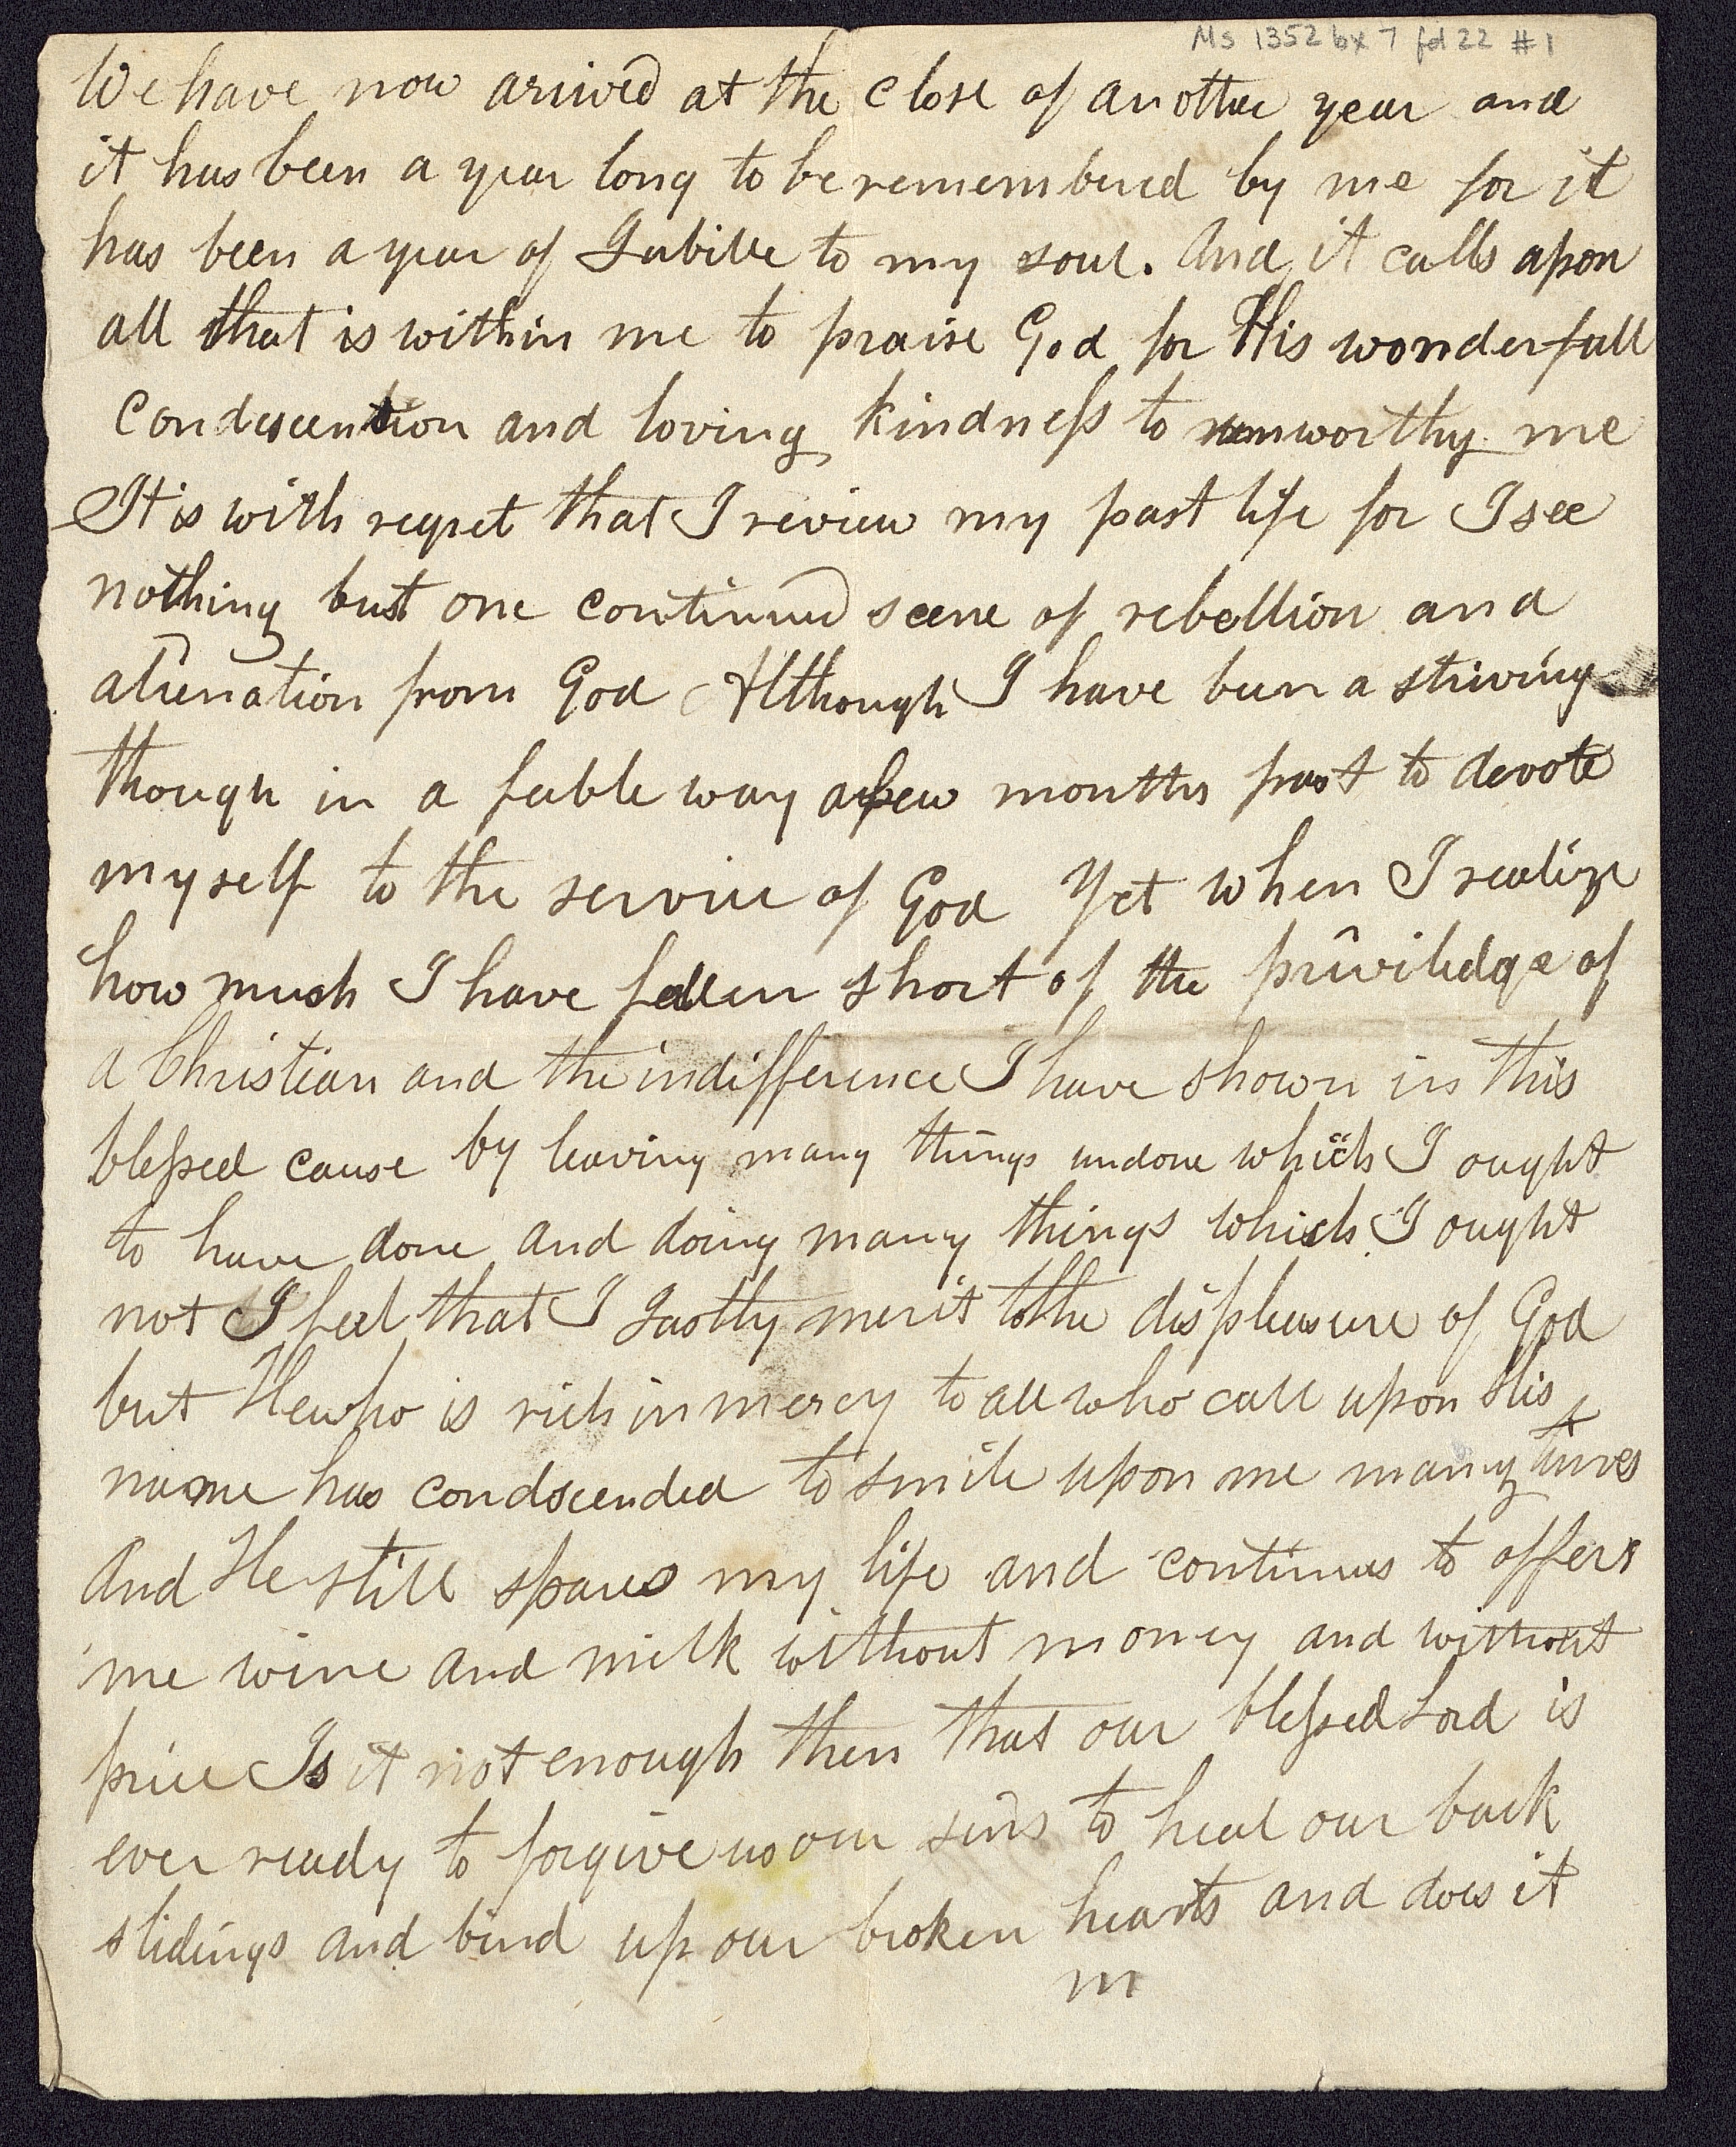 Ms 1352 bx 7 fd 22 #1
We have now arived at the close of another year and
it has been a year long to be remembered by me for it
has been a year of Jubilee to my soul. And it calls apon
all that is within me to praise God for His wonderfull
Condescention and loving kindness to unworthy me
It is with regret that I review my past life for I see
nothing but one continued scene of rebellion and
alienation from God Although I have been a striving
though in a feeble way a few months past to devote
myself to the service of God Yet when I realize
how much I have fallen short of the priviledge of
a Christian and the indifference I have shown in this
blessed cause by leaving many things undone which I ought
to have done and doing many things which I ought
not I feel that I Justly merit the displeasure of God
but He who is rich in mercy to all who call upon His
name has condscended to smile upon me many times
And He still spares my life and continues to offers
me wine and milk without money and without
price Is it not enough then that our blessed Lord is
ever ready to forgive us our sins to heal our back
slidings and bind up our broken hearts and does it
m